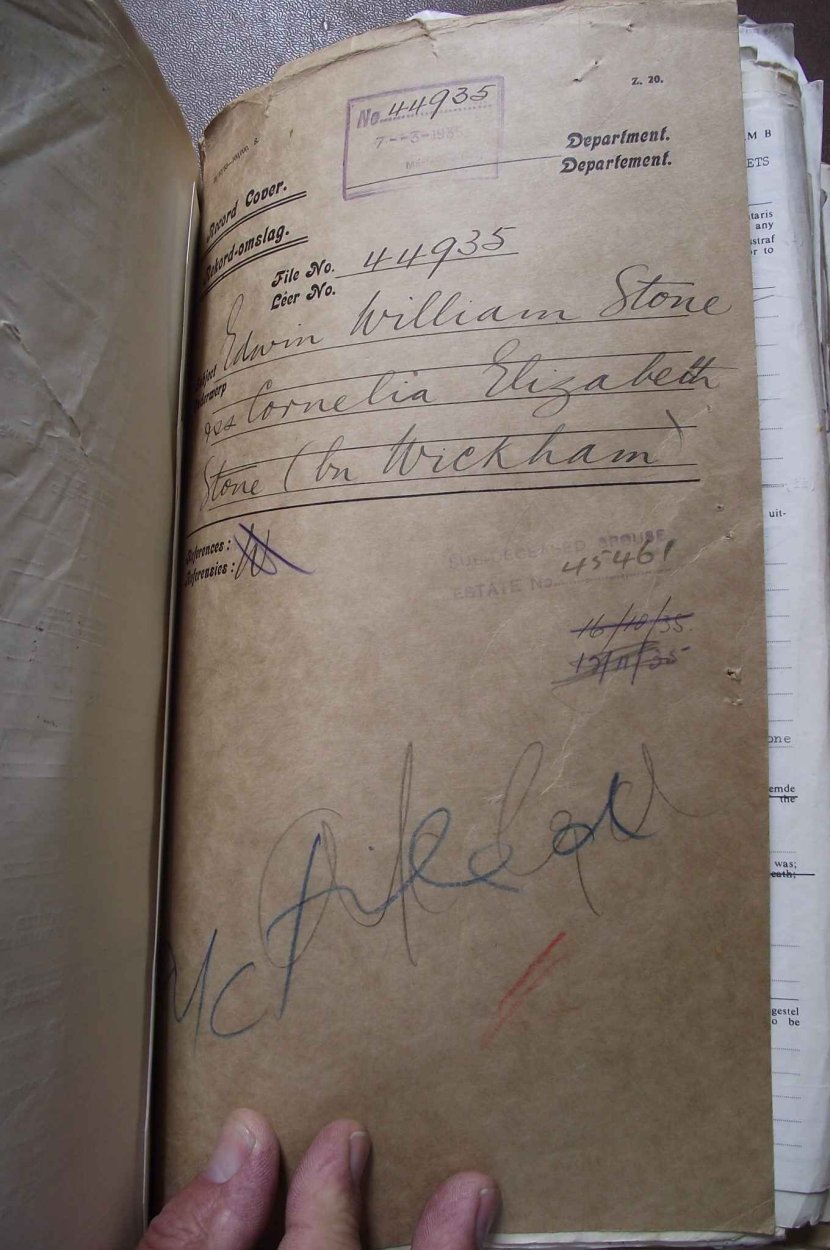 Z. 20.
No. 44935
7--3-1935
Department.
Departement.
Record Cover.
Rekord-omslag.
File No. 44935
Lêer No.
Subject Edwin William Stone
Onderwerp
Cornelia Elizabeth
Stone (bn Wickham)
References:
Referensies:
SUB-DECEASED SPOUSE
ESTATE No. 45461
16/10/35.
12/11/35
M B
ETS
taris
any
sstraf
or to
uit-
one
emde
the
was;
eath;
gestel
o be